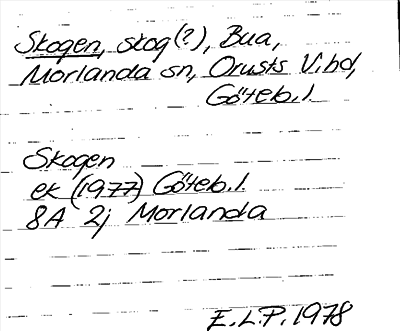 Skogen, skog(?), Bua,
Morlanda sn, Orusts V. hd,
Göteb. l.
Skogen
ek (1977) Göteb. l.
8A 2j Morlanda
E.L.P. 1978